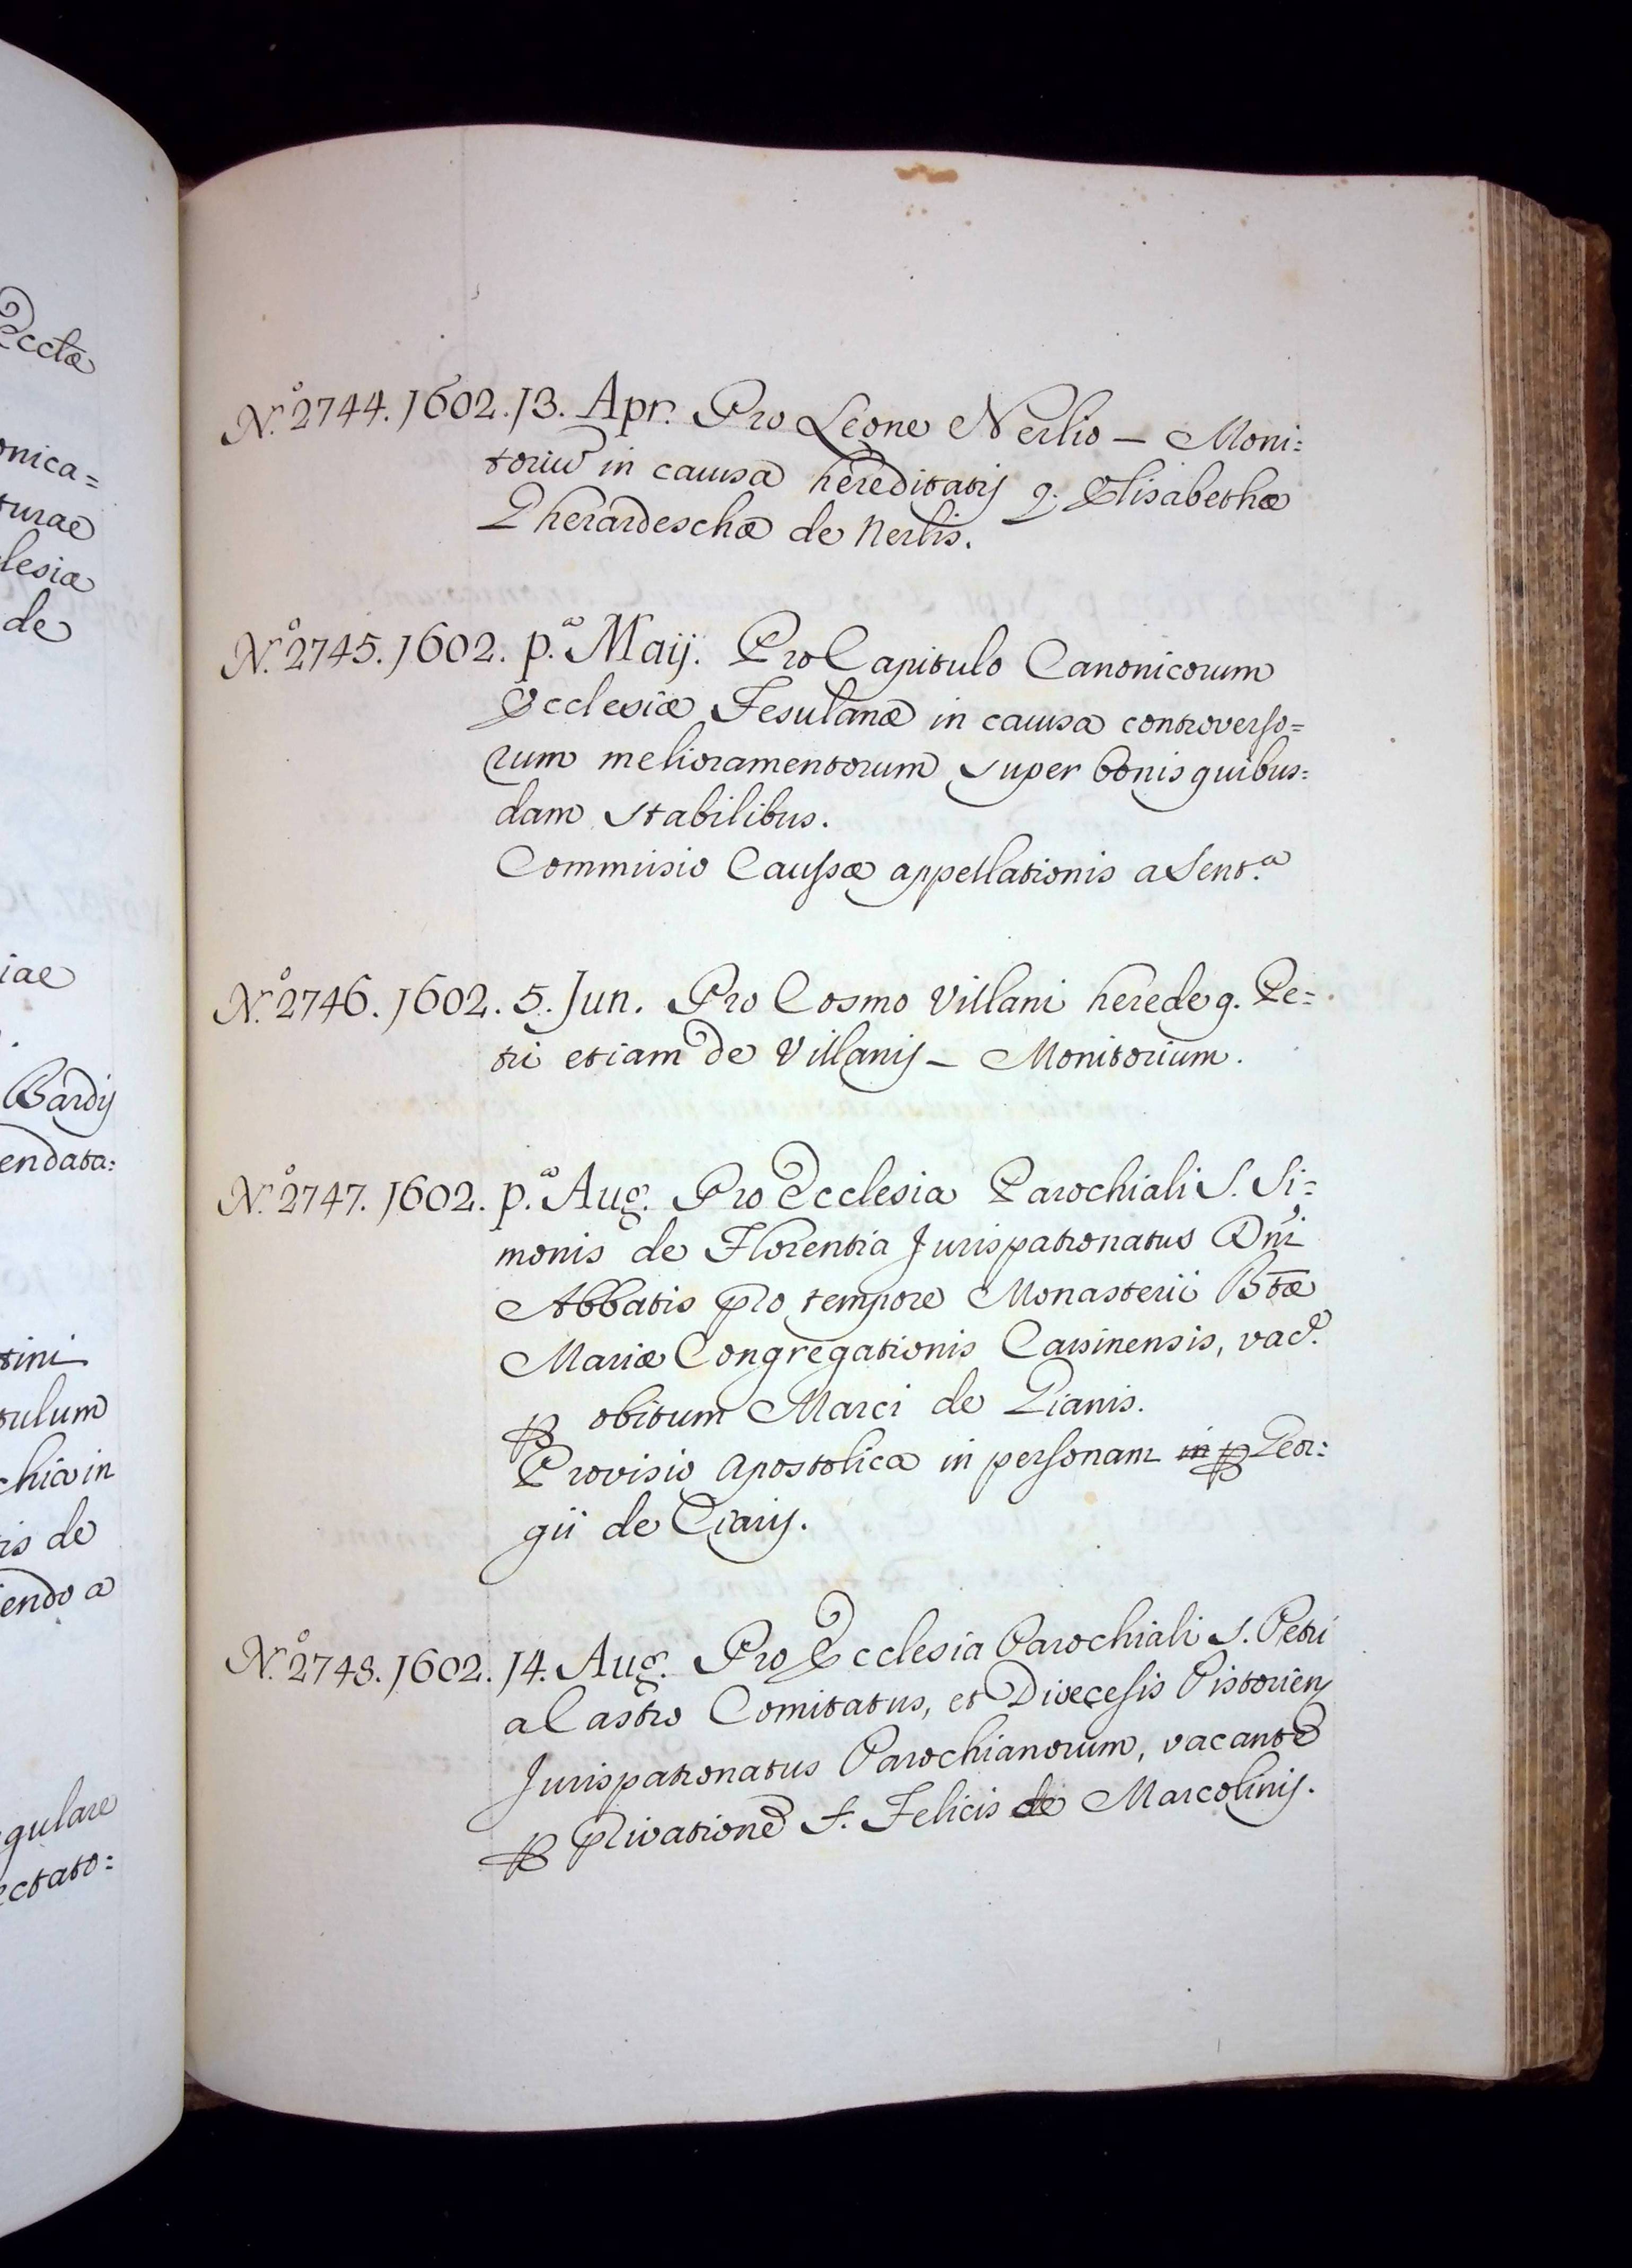 Ecctæ
onica=
turae
lesiæ
de
iae
Bardij
endata:
tini
tulum
chia in
is de
endo a
gulare
ectato:
N.º 2744. 1602. 13. Apr. Pro Leone Nerlio — Moni:
toriũ in causa hereditatis q. Elisabethæ
Gherardeschæ de Nerlis.
N.º 2745. 1602. p.ª Maij. Pro Capitulo Canonicorum
Ecclesiæ Fesulanæ in causa controverso=
rum melioramentorum super bonis quibus=
dam stabilibus.
Commissio Caussæ appellationis a Sent.ª
N.º 2746. 1602. 5. Jun. Pro Cosmo Villani herede q. Pe=
tri etiam de Villanis — Monitorium.
N.º 2747. 1602. p.ª Aug. Pro Ecclesia Parochiali S. Si=
monis de Florentia Jurispatronatus Dñi
Abbatis pro tempore Monasterii Btæ
Mariæ Congregationis Cassinensis, vac.e
ꝑ obitum Marci de Pianis.
Provisio Apostolica in personam in ꝑ Geor:
gii de Ciaijs.
N.º 2748. 1602. 14. Aug. Pro Ecclesia Parochiali S. Petri
a Castro Comitatus, et Dioecesis Pistorien
Jurispatronatus Parochianorum, vacante
ꝑ privatione f. Felicis de Marcolinis.